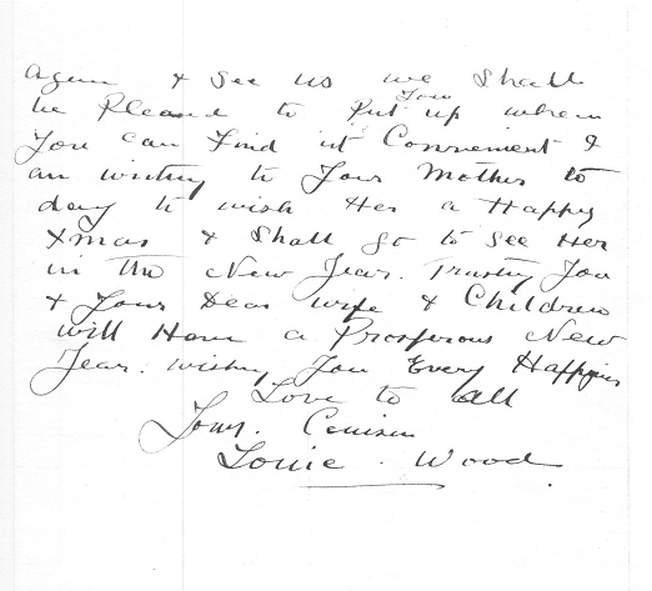 again & See us we Shall
be Pleased to Put you up when
You can Find it Convenient I
am writing to Your Mother to
day to wish Her a Happy
Xmas & Shall go to See Her
in the New Year. Trusting You
& Your Dear wife & Children
will Have a Prosperous New
Year. wishing You Every Happiness
Love to all
Your. Cousin
Louie . Wood.